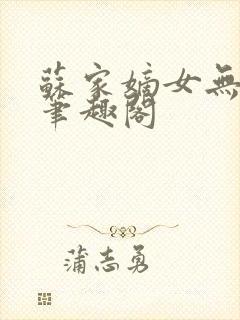 蘇家嫡女無
筆趣閣
蒲志勇